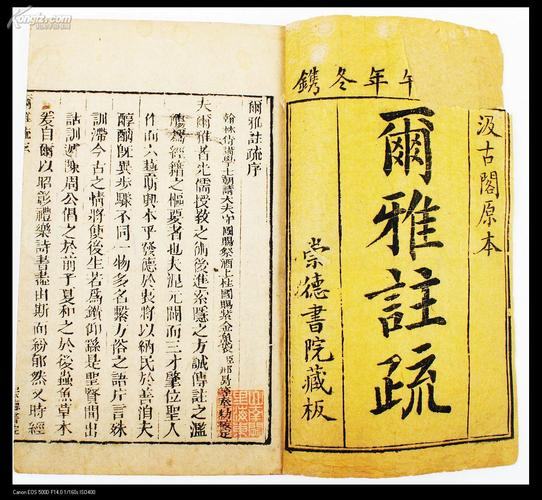 午年冬鐫
汲古閣原本
爾雅註疏
崇德書院藏板
爾雅註疏序
翰林侍講學士朝請大夫守國子祭酒上柱國賜紫金魚袋臣邢昺等奉勅校定
夫爾雅者先儒授教之術後進索隱之方誠傳註之濫
觴爲經籍之樞要者也夫混元闢而三才肇位聖人
作而六藝斯興本乎發德於衷將以納民於善洎夫
醇醨既異步驟不同一物多名繫方俗之語片言殊
訓滯今古之情將使後生若爲鑽仰繇是聖賢間出
詁訓遞陳周公倡之於前子夏和之於後蟲魚草木
爰自爾以昭彰禮樂詩書盡由斯而紛郁然又時經
Kongfz.com
Canon EOS 500D F14.0 1/160s ISO400